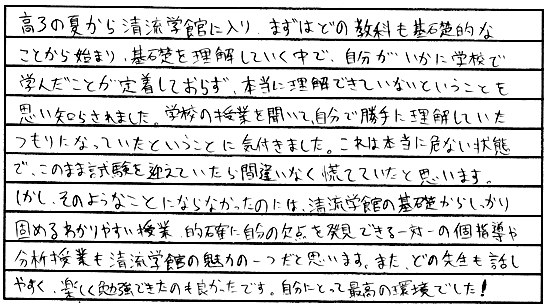 高3の夏から清流学館に入り、まずはどの教科も基礎的な
ことから始まり、基礎を理解していく中で、自分がいかに学校で
学んだことが定着しておらず、本当に理解できていないということを
思い知らされました。学校の授業を聞いて、自分で勝手に理解していた
つもりになっていたということに気付きました。これは本当に危ない状態
で、このまま試験を迎えていたら間違いなく慌てていたと思います。
しかし、そのようなことにならなかったのには、清流学館の基礎からしっかり
固めるわかりやすい授業、的確に自分の欠点を発見できる一対一の個指導や
分析授業も清流学館の魅力の一つだと思います。また、どの先生も話し
やすく、楽しく勉強できたのも良かったです。自分にとって最高の環境でした!